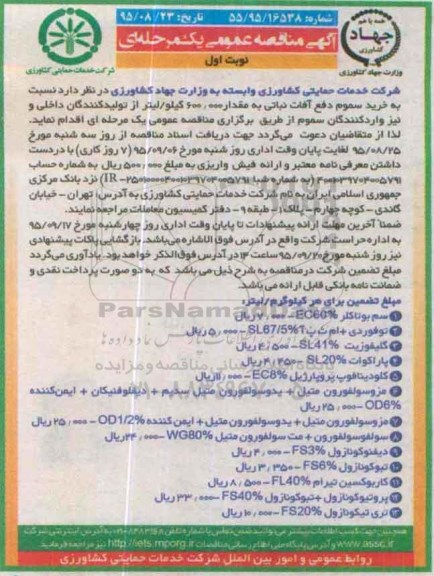 شماره: ۵۵/۹۵/۱۶۵۳۸
تاریخ: ۹۵/۰۸/۲۳
همه با هم
جهاد
کشاورزی
وزارت جهاد کشاورزی
آگهی مناقصه عمومی یکمرحله‌ای
نوبت اول
شرکت خدمات حمایتی کشاورزی
شرکت خدمات حمایتی کشاورزی وابسته به وزارت جهاد کشاورزی در نظر دارد نسبت
به خرید سموم دفع آفات نباتی به مقدار ۶۰۰,۰۰۰ کیلو/لیتر از تولیدکنندگان داخلی و
نیز واردکنندگان سموم از طریق برگزاری مناقصه عمومی یک مرحله ای اقدام نماید.
لذا از متقاضیان دعوت می‌گردد جهت دریافت اسناد مناقصه از روز سه شنبه مورخ
۹۵/۰۸/۲۵ لغایت پایان وقت اداری روز شنبه مورخ ۹۵/۰۹/۰۶ (۷ روز کاری) با در دست
داشتن معرفی نامه معتبر و ارائه فیش واریزی به مبلغ ۵۰۰,۰۰۰ ریال به شماره حساب
نزد بانک مرکزی
جمهوری اسلامی ایران به نام شرکت خدمات حمایتی کشاورزی به آدرس: تهران - خیابان
گاندی - کوچه چهارم - پلاک ۱ - طبقه ۹ - دفتر کمیسیون معاملات مراجعه نمایند.
ضمناً آخرین مهلت ارائه پیشنهادات تا پایان وقت اداری روز چهارشنبه مورخ ۹۵/۰۹/۱۷
به اداره حراست شرکت واقع در آدرس فوق الاشاره می‌باشد. بازگشایی پاکات پیشنهادی
نیز روز شنبه مورخ ۹۵/۰۹/۲۰ ساعت ۱۴ در آدرس فوق الذکر خواهد بود. یادآوری می‌گردد
مبلغ تضمین شرکت در مناقصه به شرح ذیل می باشد که به دو صورت پرداخت نقدی و
ضمانت نامه بانکی قابل ارائه می باشد.
مبلغ تضمین برای هر کیلوگرم/لیتر:
۱ سم بوتاکلر EC60% - ۷,۰۰۰ ریال
۲ توفوردی + ام ث پ آ SL67/5% - ۵,۰۰۰ ریال
۳ گلیفوزیت SL41% - ۴,۵۰۰ ریال
۴ پاراکوات SL20% - ریال
۵ کلودینافوپ پروپارژیل EC8% - ریال
۶ مزوسولفورون متیل + یدوسولفورون متیل سدیم + دیفلوفنیکان + ایمن‌کننده
OD6% - ۲۵,۰۰۰ ریال
۷ مزوسولفورون متیل + یدوسولفورون متیل + ایمن کننده OD1/2% - ۲۵,۰۰۰ ریال
۸ سولفوسولفورون + مت سولفورون متیل WG80% - ۲۴,۰۰۰ ریال
۹ دیفنوکونازول FS3% - ۴,۰۰۰ ریال
۱۰ تبوکونازول FS6% - ۳,۳۵۰ ریال
۱۱ کاربوکسین تیرام FL40% - ۸,۵۰۰ ریال
۱۲ پروتیوکونازول + تبوکونازول FS40% - ۳۳,۰۰۰ ریال
۱۳ تری تیکونازول FS20% - ۱۰,۰۰۰ ریال
www.assc.ir
http://iets.mporg.ir مراجعه فرمایید
روابط عمومی و امور بین الملل شرکت خدمات حمایتی کشاورزی